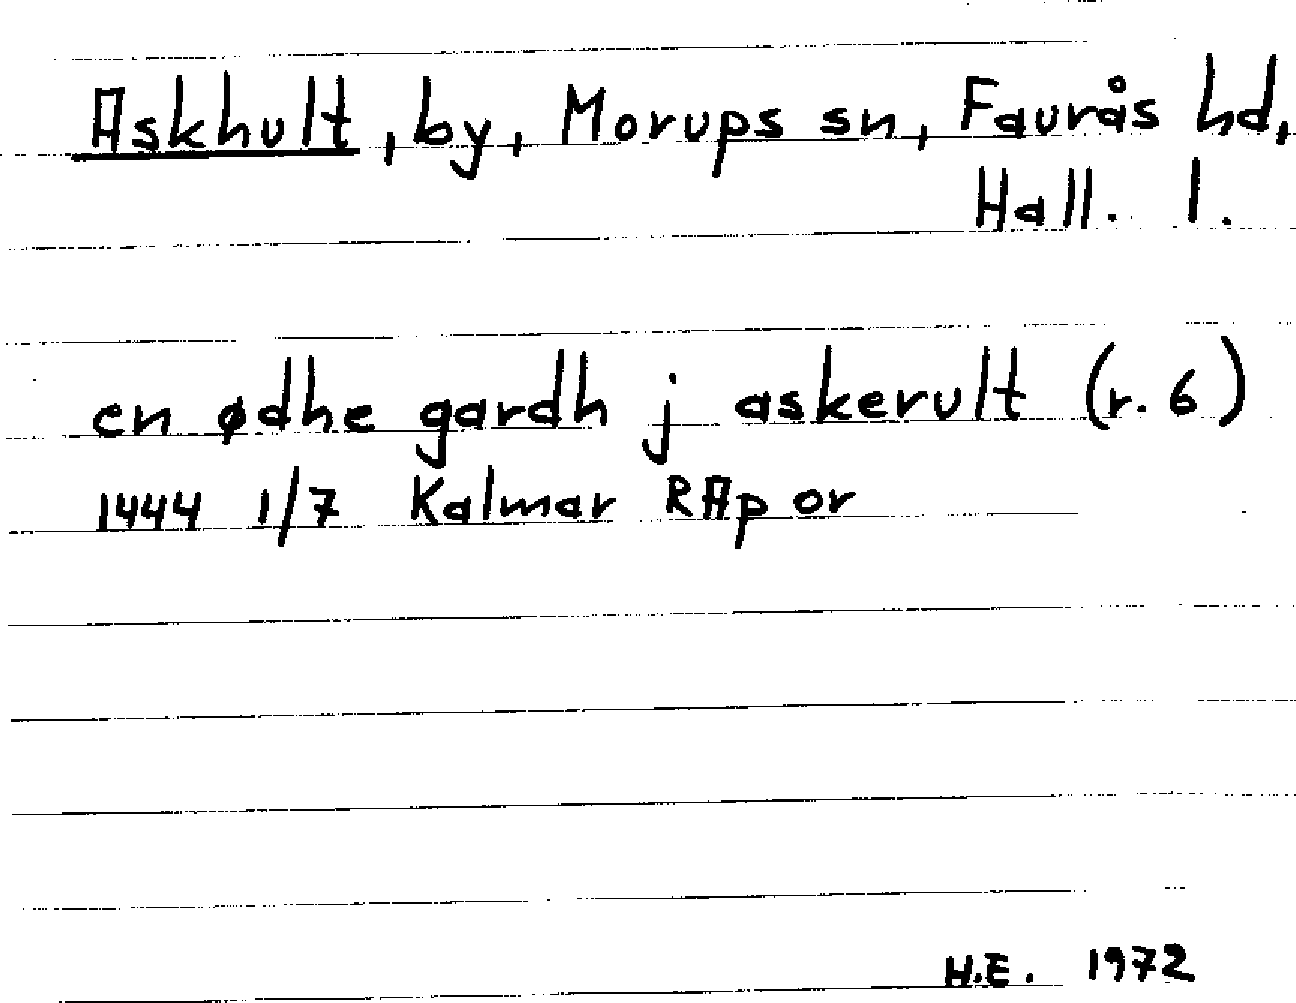 Askhult, by, Morups sn, Faurås hd,
Hall. l.
en ødhe gardh j askerult (r. 6)
1444 1/7 Kalmar RAp or
H.E. 1972